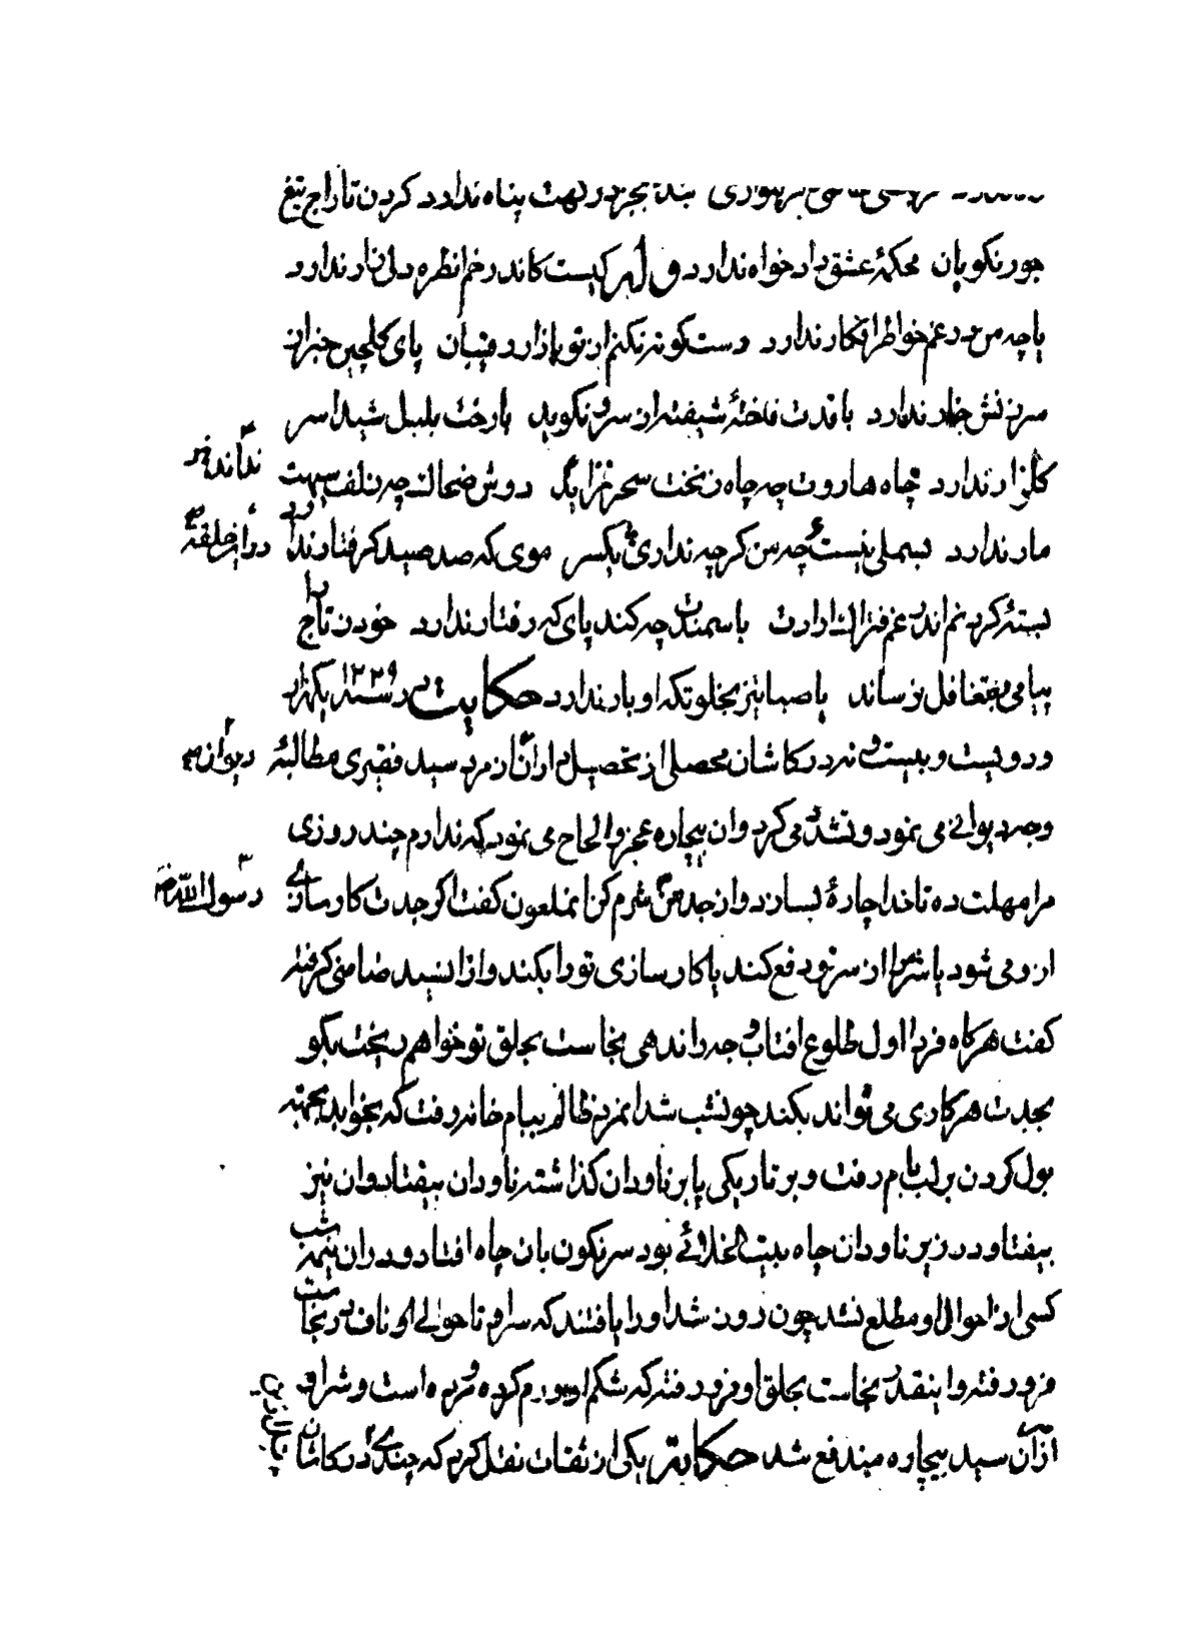 بجز درگهت پناه ندارد کردن تاراج تیغ
جور نکویان محکمهٔ عشق داد خواه ندارد و له کیست کاندر خم انظره دلی زار ندارد
یا چه من در غم خواطر افکار ندارد دست کوته نکنم از تو بازار رقیبان پای گلچین خبر از
سرزنش خار ندارد با قدت فاختهٔ شیفته از سرو نگوید با رخت بلبل شیدا سر
گلزار ندارد چاه هاروت چه چاه زنخت سحر نزاید دوش ضحاک چه زلف سیهت
مار ندارد بسملی نیست چه من گرچه نداری یکسر موی که صد صید گرفتار ندارد
بستهٔ گردنم اندر غم فتراک ارادت با سمندت چه کند پای که رفتار ندارد خود
پیامی تغافل برساند یا صبا نیز بخلوتگه او بار ندارد حکایت در سنه ۱۲۲۹ یکهزار
و دویست و بیست و نه در کاشان محصلی از تحصیلداران از مرد سید فقیری مطالبهٔ
وجه دیوانی می نمود و تشدد می کرد و ان بیچاره عجز و الحاح می نمود که ندارم چند روزی
مرا مهلت ده تا خدا چارهٔ بسازد و از جد من شرم کن انملعون گفت اگر جدت کارسازی
از و می شود یا شر مرا از سر تو دفع کند یا کار سازی تو را بکند و از ان سید ضامنی گرفته
گفت هرگاه فردا اول طلوع افتاب وجه را ندهی نجاست بحلق تو خواهم ریخت بگو
بجدت هر کاری می تواند بکند چون شب شد انمرد ظالم ببام خانه رفت که بخوابد بجهته
بول کردن بر لب بام رفت و بر تاریکی پا بر ناودان گذاشته ناودان بیفتاد و ان نیز
بیفتاد و در زیر ناودان چاه بیت الخلائی بود سرنگون بان چاه افتاد و در ان نیمه شب
کسی از احوال او مطلع نشد چون روز شد او را یافتند که سر او تا حوالی ناف در نجاست
فرو رفته و اینقدر نجاست بحلق او فرو رفته که شکم او ورم کرده و مرده است و شر او
از آن سید بیچاره مندفع شد حکایت یکی از ثقات نقل کرد که چندی در کاشان
رسول الله